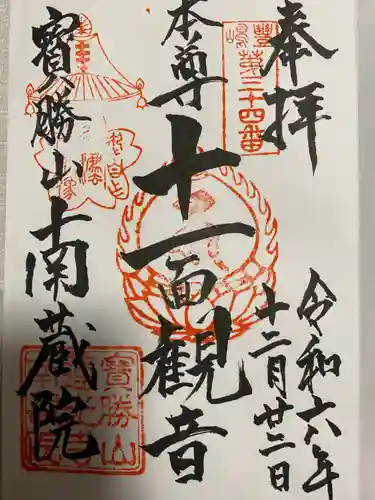 奉拝
令和六年
十二月廿二日
豐嶋
第三十四番
本尊
十一面観音
寳勝山南蔵院
寳勝山